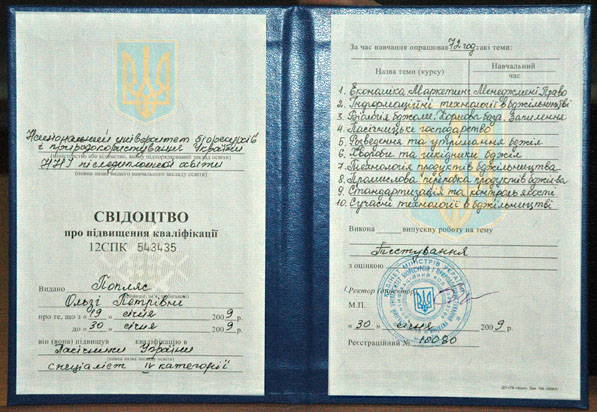 Національний університет біоресурсів
і природокористування України
(міністерство або відомство, якому підпорядкований заклад освіти)
ННІ післядипломної освіти
(повна назва навчального закладу освіти)
СВІДОЦТВО
про підвищення кваліфікації
12СПК 543435
Видано Попляс
Ользі Петрівні
про те, що з « 19 » січня 2009 р.
до « 30 » січня 2009 р.
він (вона) підвищув кваліфікацію в
Пасічники України
спеціаліст IV категорії
За час навчання опрацював 72 год такі теми:
Назва теми (курсу) Навчальний час
1. Економіка Маркетинг Менеджмент Право
2. Інформаційні технології в бджільництві
3. Біологія бджоли. Кормова база. Запилення
4. Пасічницьке господарство
5. Розведення та утримання бджіл
6. Хвороби та шкідники бджіл
7. Технологія продуктів бджільництва
8. Промислова переробка продуктів
9. Стандартизація та контроль якості
10. Сучасні технології в бджільництві
Викона випускну роботу на тему
Тестування
з оцінкою
Ректор
М.П.
« 30 » січня 2009 р.
Реєстраційний № 10080